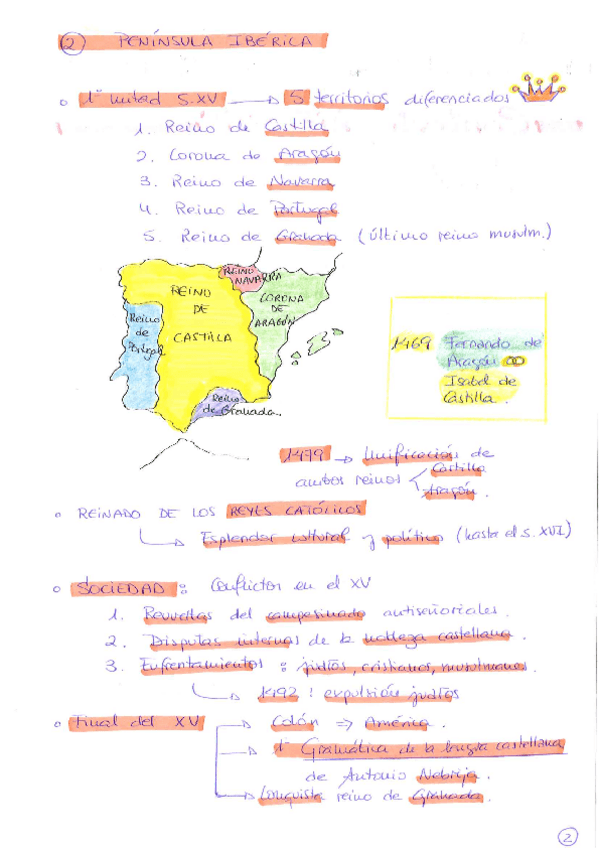 ② PENÍNSULA IBÉRICA
○ 1ª mitad S.XV → 5 territorios diferenciados
1. Reino de Castilla
2. Corona de Aragón
3. Reino de Navarra
4. Reino de Portugal
5. Reino de Granada (último reino musulm.)
REINO NAVARRA
REINO DE CASTILLA
CORONA DE ARAGÓN
Reino de Portugal
Reino de Granada.
1469 Fernando de
Aragón
Isabel de
Castilla.
1479 → Unificación de
ambos reinos < Castilla
Aragón.
○ REINADO DE LOS REYES CATÓLICOS
→ Esplendor cultural y político (hasta el s. XVII)
○ SOCIEDAD: Conflictos en el XV
1. Revueltas del campesinado antiseñoriales.
2. Disputas internas de la nobleza castellana.
3. Enfrentamientos: judíos, cristianos, musulmanes.
→ 1492: expulsión judíos
○ Final del XV → Colón ⇒ América.
→ 1ª Gramática de la lengua castellana
de Antonio Nebrija.
→ Conquista reino de Granada.
②